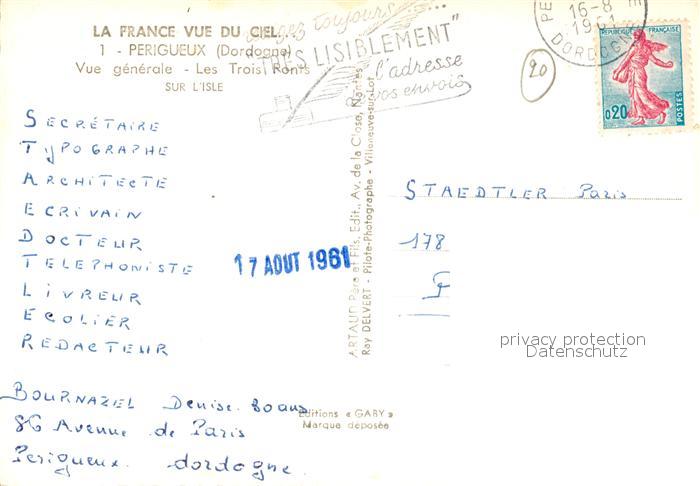 LA FRANCE VUE DU CIEL
1 - PERIGUEUX (Dordogne)
Vue générale - Les Trois Ponts
SUR L'ISLE
toujours
"TRÈS LISIBLEMENT"
l'adresse
vos envois
16-8
1961
DORDOGNE
20
RÉPUBLIQUE FRANÇAISE
0,20
POSTES
SECRÉTAIRE
TYPOGRAPHE
ARCHITECTE
ECRIVAIN
DOCTEUR
TELEPHONISTE
LIVREUR
ECOLIER
REDACTEUR
17 AOUT 1961
ARTAUD Père et Fils, Edit., Av. de la Close, Nantes
Ray DELVERT - Pilote-Photographe - Villeneuve-sur-Lot
STAEDTLER Paris
178
F
privacy protection
Datenschutz
BOURNAZEL Denise
86 Avenue de Paris
Perigueux dordogne
Editions « GABY »
Marque déposée